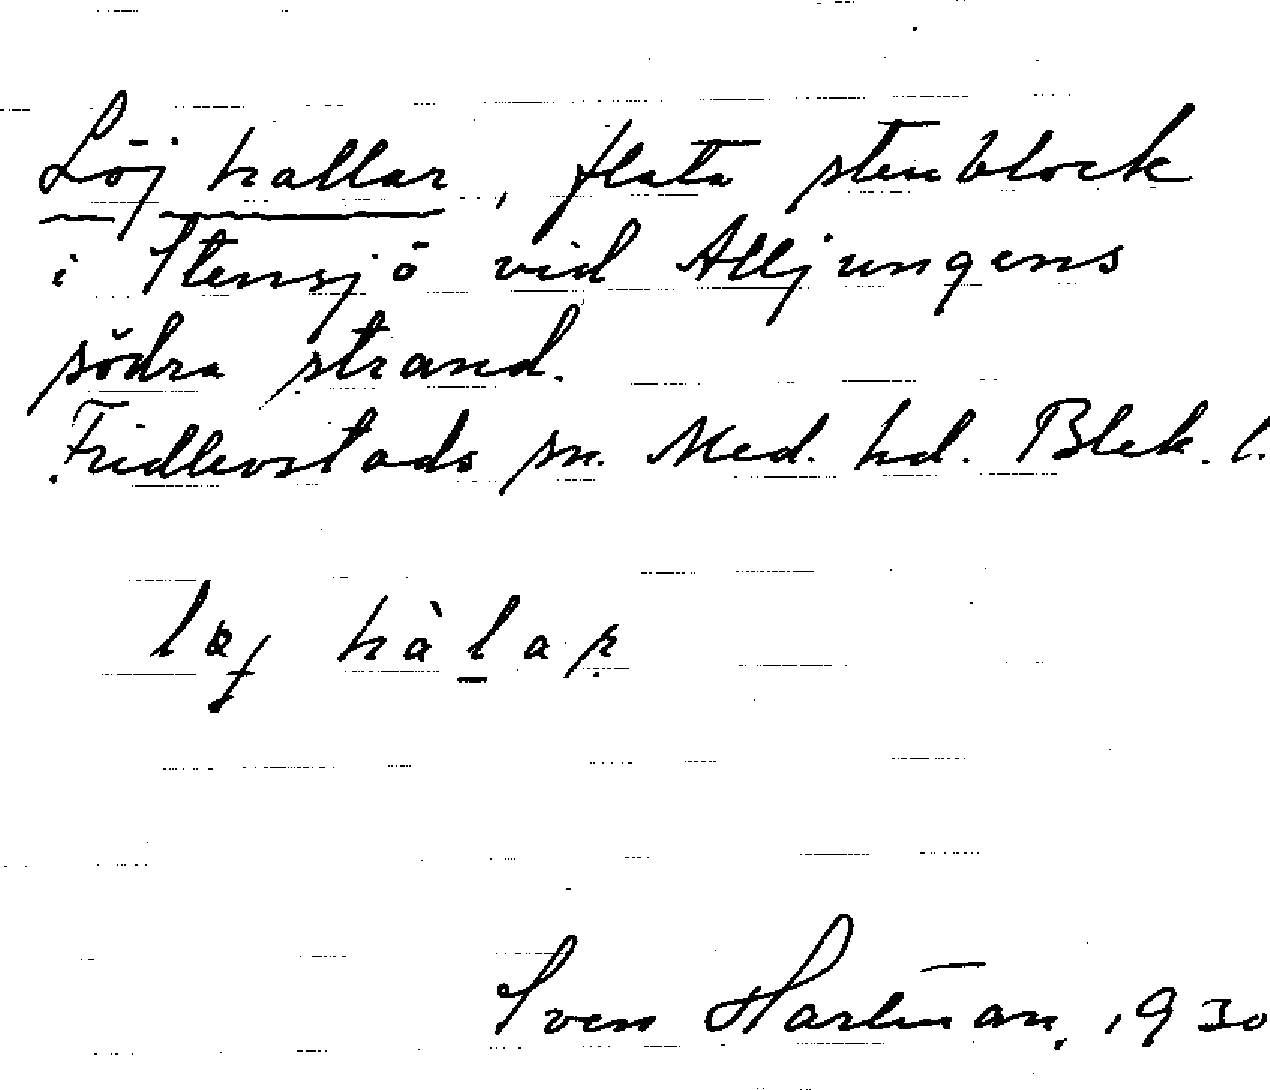 Löjhallar, flata stenblock
i Stensjö vid Alljungens
södra strand.
Fridlevstads sn. Med. hd. Blek. l.
hàlar
Sven Hartman, 1930